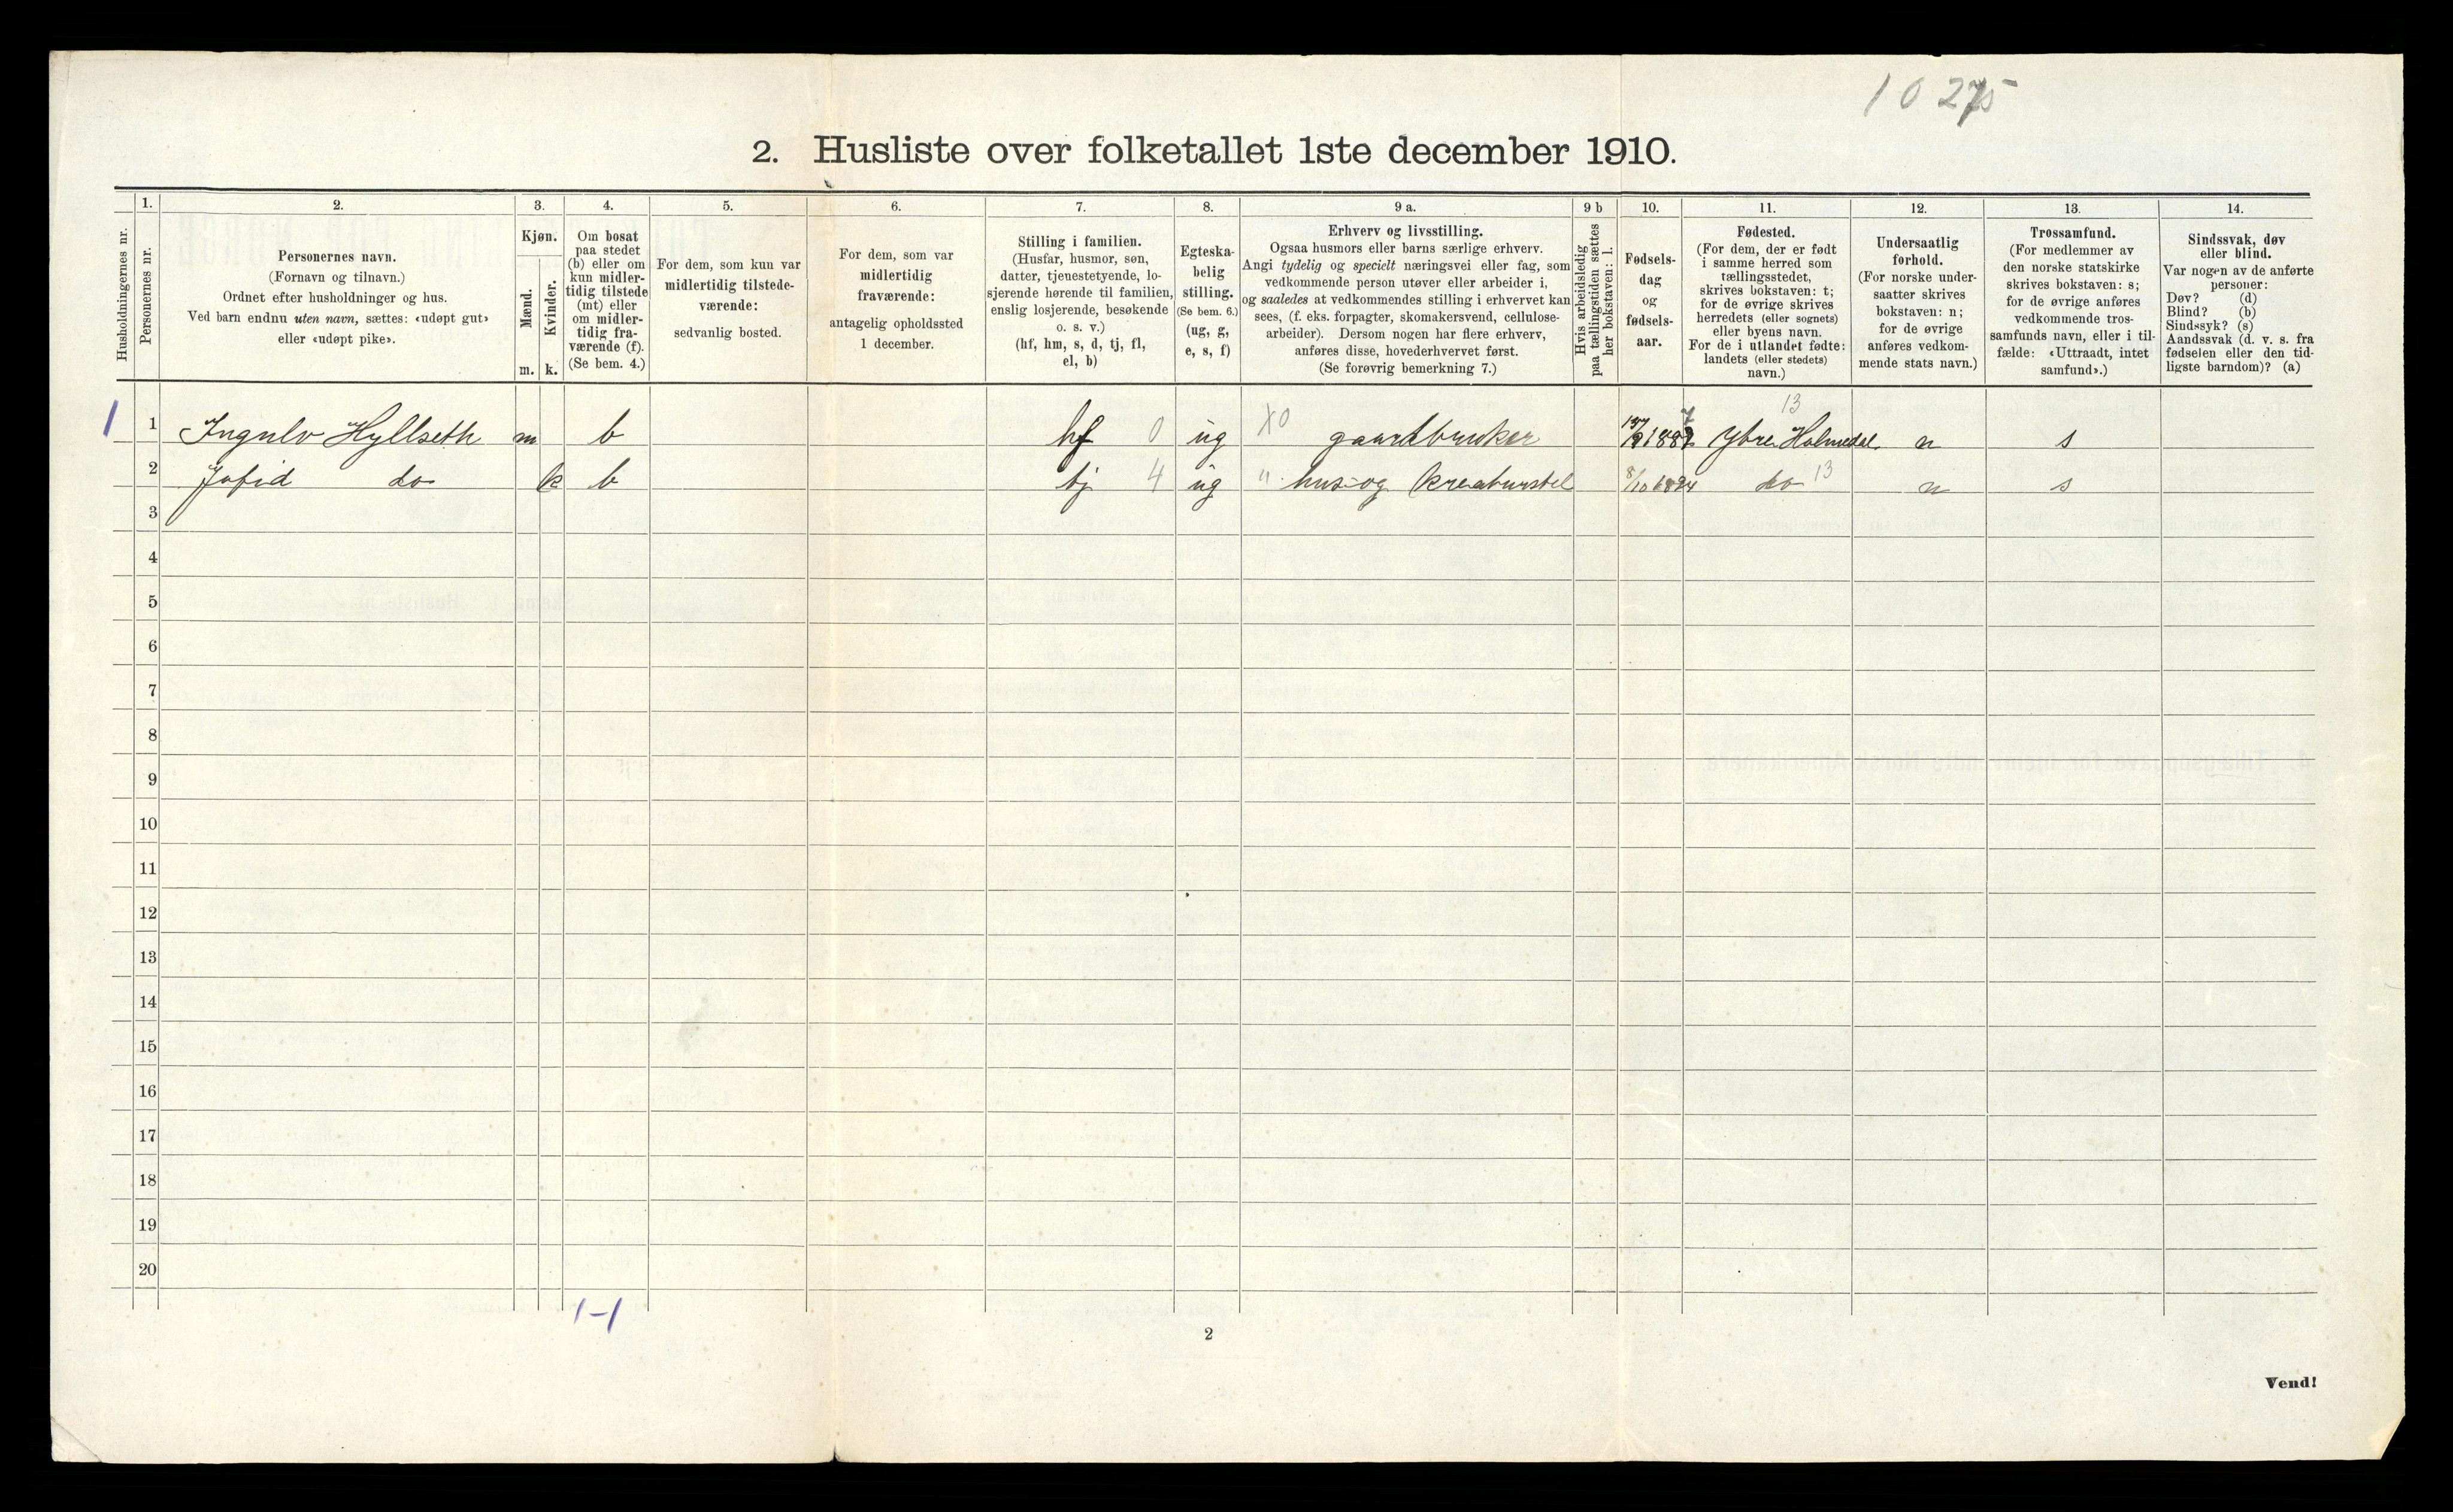 10275
2. Husliste over folketallet 1ste december 1910.
Husholdningernes nr.
1.
Personernes nr.
2.
Personernes navn.
(Fornavn og tilnavn.)
Ordnet efter husholdninger og hus.
Ved barn endnu uten navn, sættes: «udøpt gut»
eller «udøpt pike».
3.
Kjøn.
Mænd.
Kvinder.
m. k.
4.
Om bosat
paa stedet
(b) eller om
kun midler-
tidig tilstede
(mt) eller
om midler-
tidig fra-
værende (f).
(Se bem. 4.)
5.
For dem, som kun var
midlertidig tilstede-
værende:
sedvanlig bosted.
6.
For dem, som var
midlertidig
fraværende:
antagelig opholdssted
1 december.
7.
Stilling i familien.
(Husfar, husmor, søn,
datter, tjenestetyende, lo-
sjerende hørende til familien,
enslig losjerende, besøkende
o. s. v.)
(hf, hm, s, d, tj, fl,
el, b)
8.
Egteska-
belig
stilling.
(Se bem. 6.)
(ug, g,
e, s, f)
9 a.
Erhverv og livsstilling.
Ogsaa husmors eller barns særlige erhverv.
Angi tydelig og specielt næringsvei eller fag, som
vedkommende person utøver eller arbeider i,
og saaledes at vedkommendes stilling i erhvervet kan
sees, (f. eks. forpagter, skomakersvend, cellulose-
arbeider). Dersom nogen har flere erhverv,
anføres disse, hovederhvervet først.
(Se forøvrig bemerkning 7.)
9 b
Hvis arbeidsledig
paa tællingstiden sættes
her bokstaven: l.
10.
Fødsels-
dag
og
fødsels-
aar.
11.
Fødested.
(For dem, der er født
i samme herred som
tællingsstedet,
skrives bokstaven: t;
for de øvrige skrives
herredets (eller sognets)
eller byens navn.
For de i utlandet fødte:
landets (eller stedets)
navn.)
12.
Undersaatlig
forhold.
(For norske under-
saatter skrives
bokstaven: n;
for de øvrige
anføres vedkom-
mende stats navn.)
13.
Trossamfund.
(For medlemmer av
den norske statskirke
skrives bokstaven: s;
for de øvrige anføres
vedkommende tros-
samfunds navn, eller i til-
fælde: «Uttraadt, intet
samfund».)
14.
Sindssvak, døv
eller blind.
Var nogen av de anførte
personer:
Døv? (d)
Blind? (b)
Sindssyk? (s)
Aandssvak (d. v. s. fra
fødselen eller den tid-
ligste barndom)? (a)
1 1 Ingulv Hyllseth m b hf 0 ug X0 gaardbruker Ytre Holmedal 13 n s
2 Jofid do k b tj 4 ug " hus- og kreaturstel 8/10 1894 do 13 n s
3
4
5
6
7
8
9
10
11
12
13
14
15
16
17
18
19
20
1-1
2
Vend!